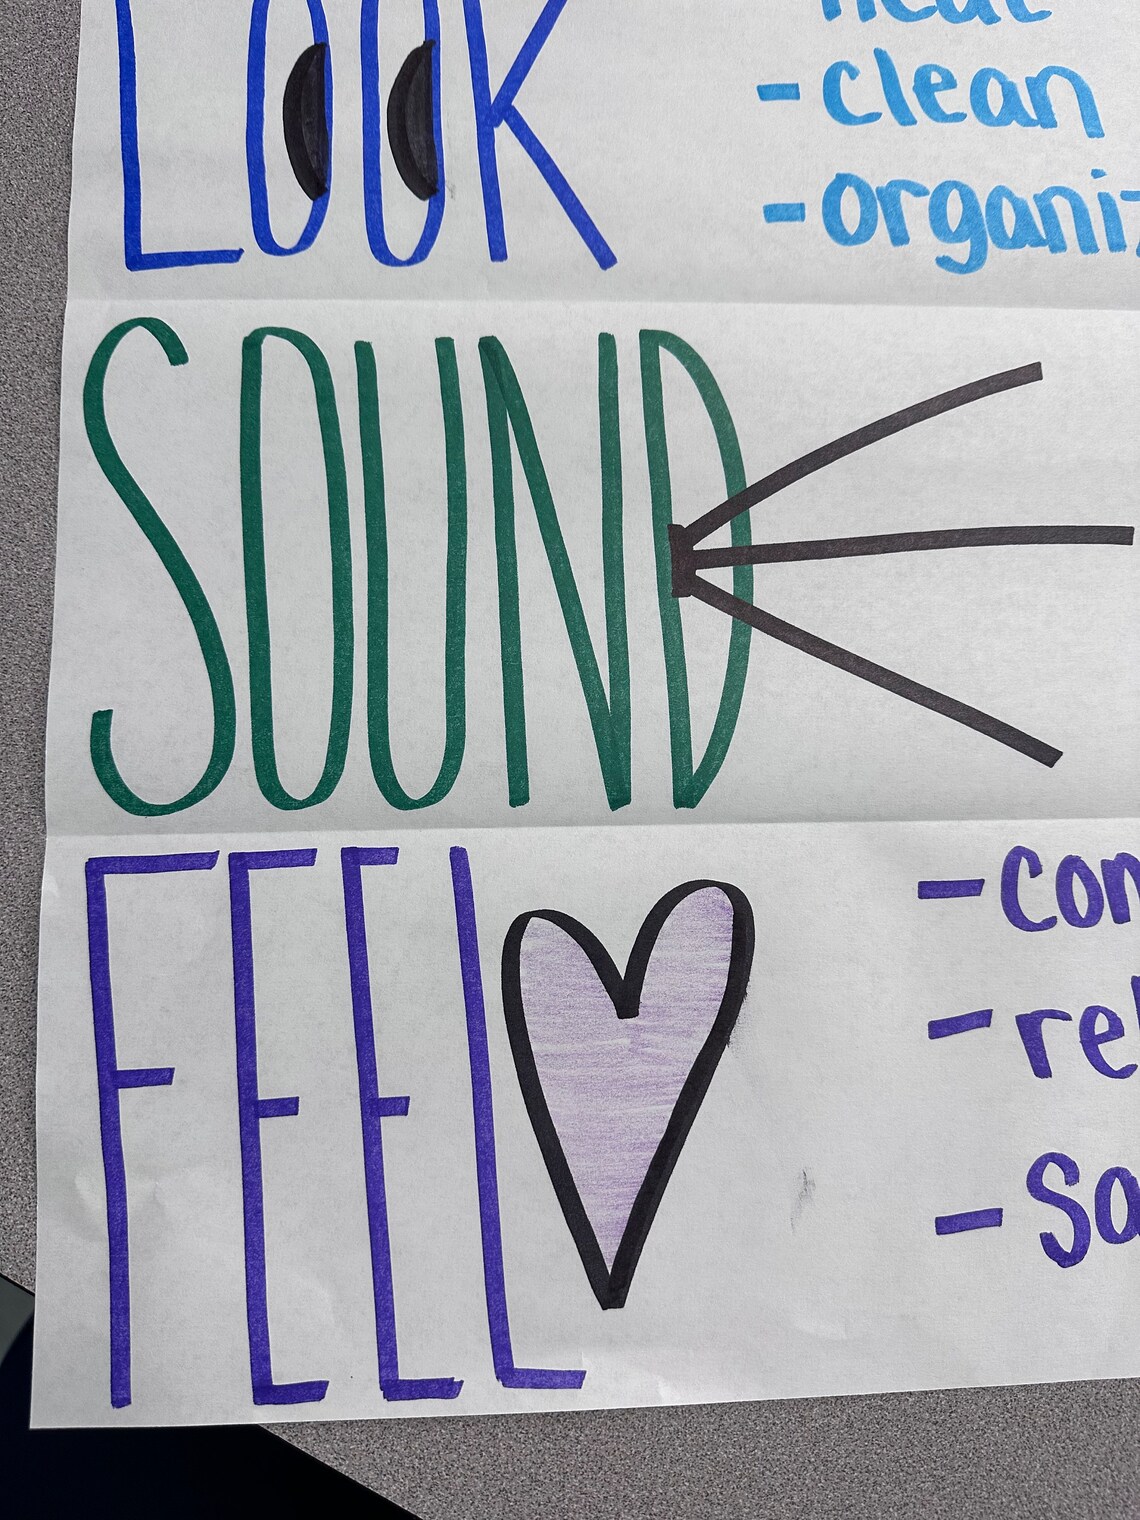 LOOK
neat
- clean
- organiz
SOUND
FEEL
- con
- rel
- So